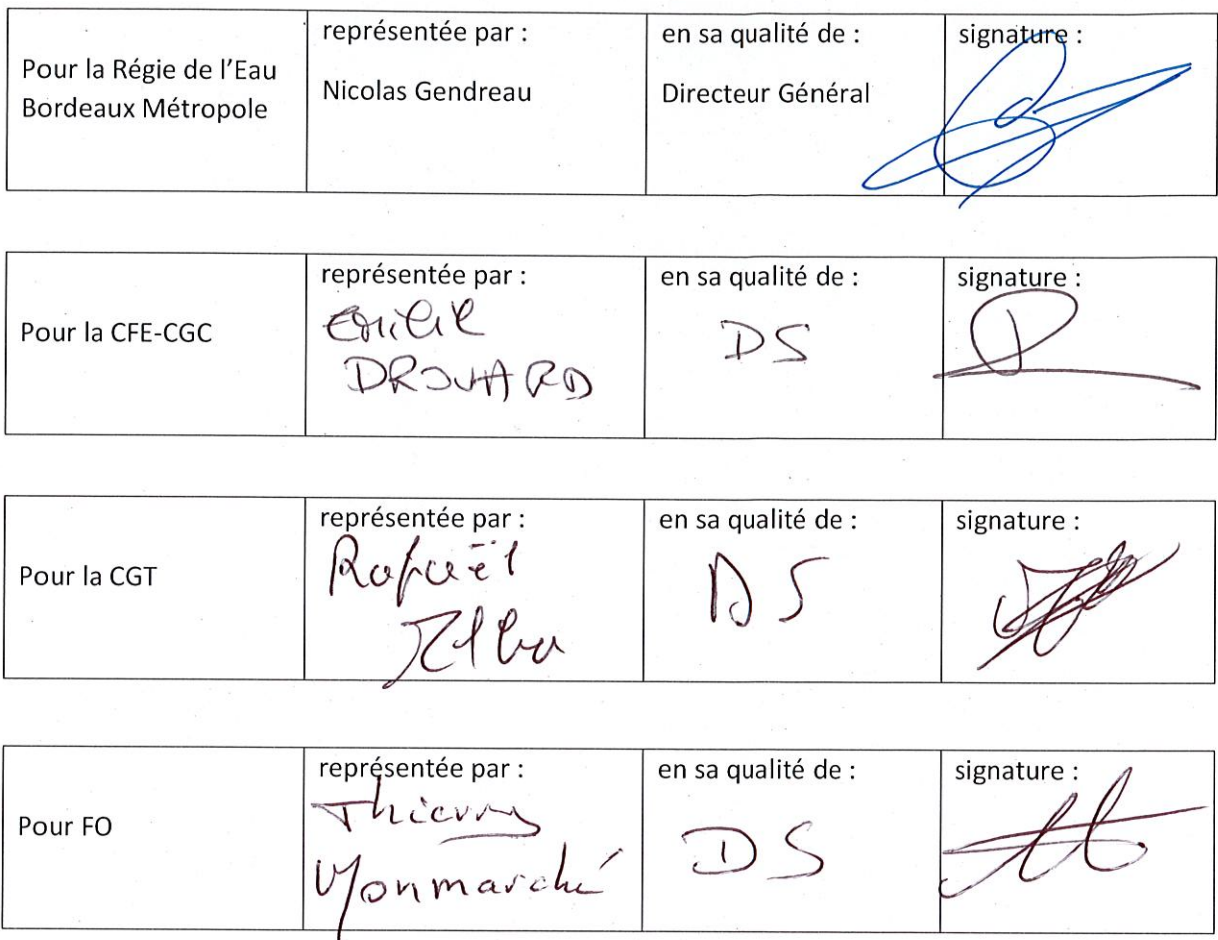 Pour la Régie de l'Eau
Bordeaux Métropole
représentée par :
Nicolas Gendreau
en sa qualité de :
Directeur Général
signature :
Pour la CFE-CGC
représentée par :
Emilie
DROUARD
en sa qualité de :
DS
signature :
Pour la CGT
représentée par :
Rafaël
en sa qualité de :
DS
signature :
Pour FO
représentée par :
Thierry
Monmarché
en sa qualité de :
DS
signature :